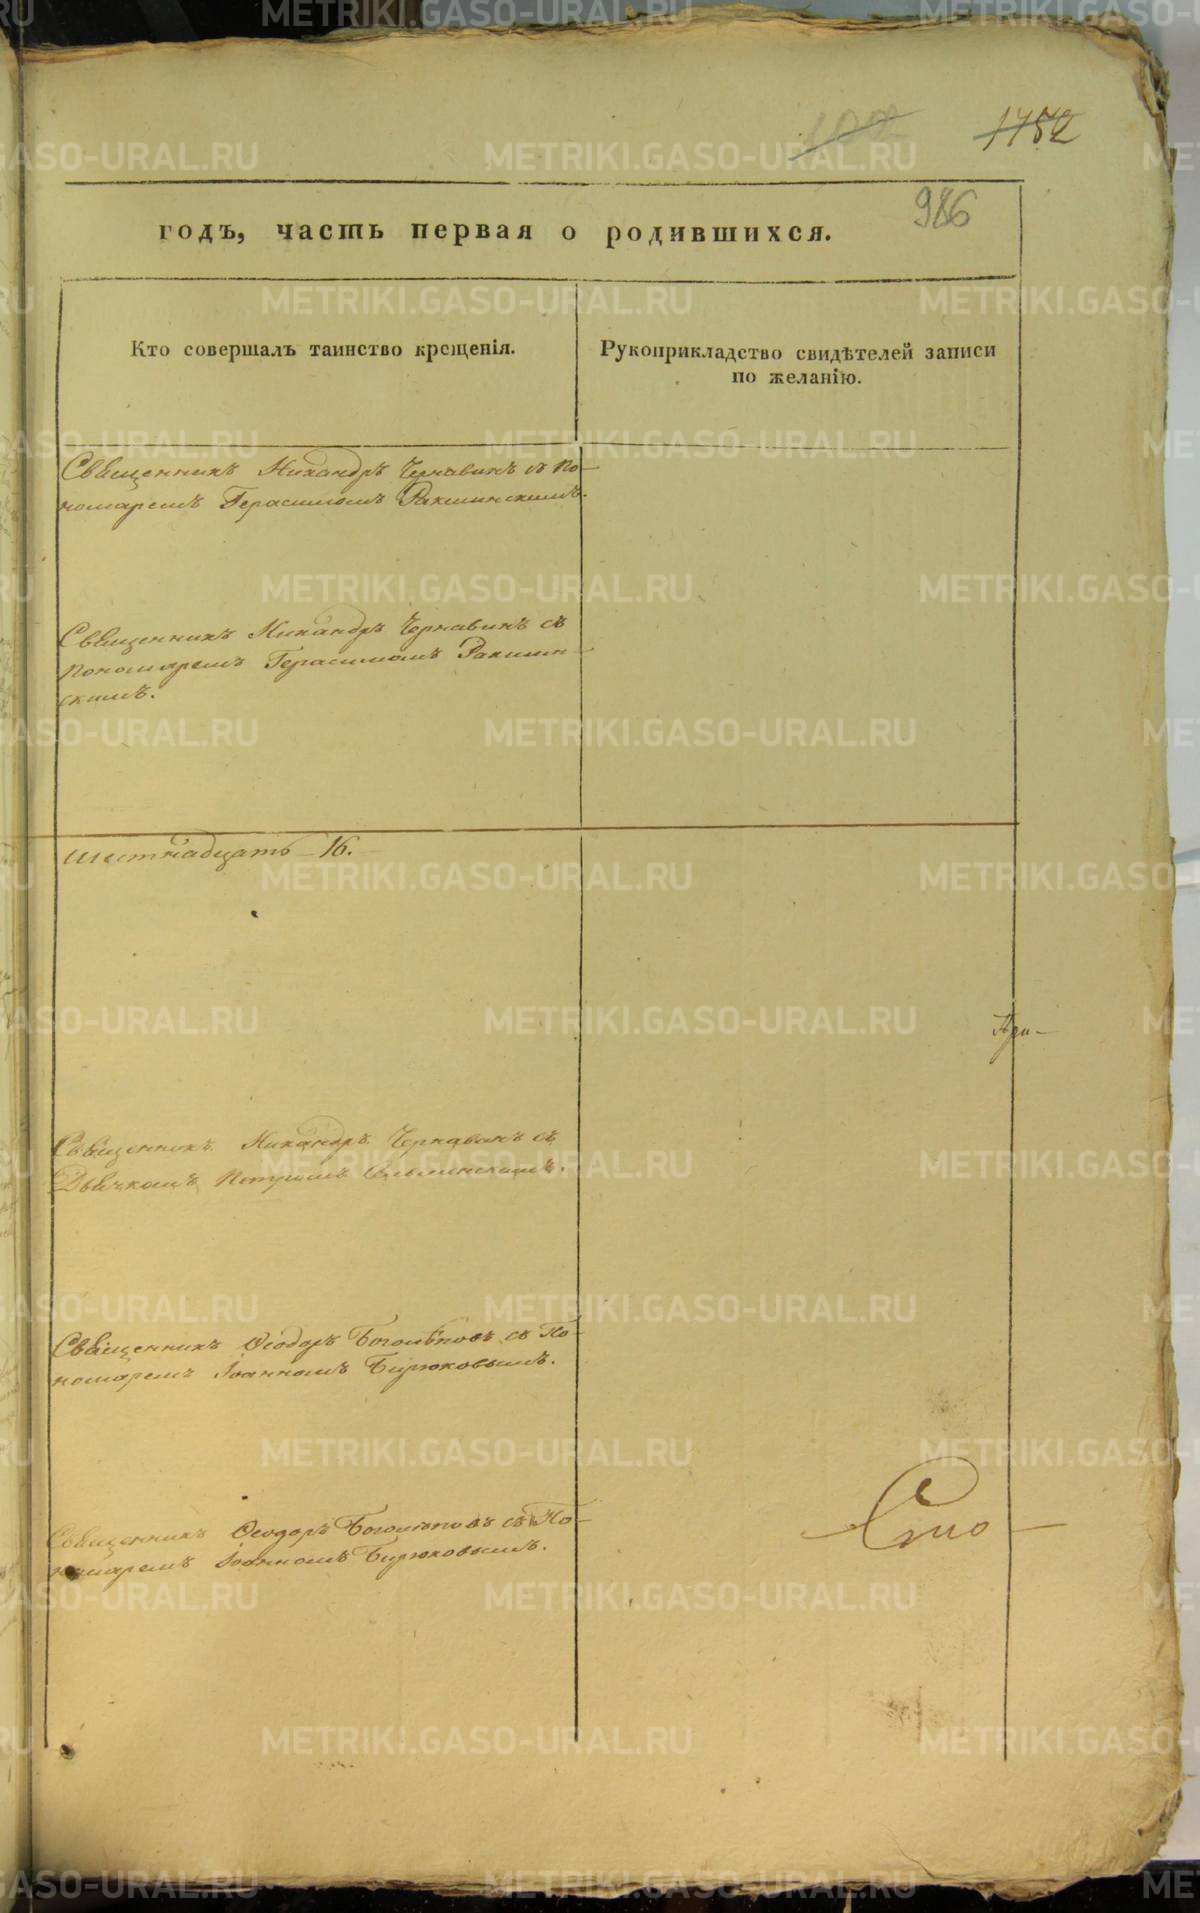 1752
986
годъ, часть первая о родившихся.
Кто совершалъ таинство крещенія.
Рукоприкладство свидѣтелей записи
по желанію.
Священникъ Никандръ Чернавинъ съ По-
номаремъ Герасимомъ Ракшинскимъ.
Священникъ Никандръ Чернавинъ съ
Пономаремъ Герасимомъ Ракшин-
скимъ.
шестнадцать 16.
При-
Священникъ Никандръ Чернавинъ съ
Дьячкомъ Петромъ
Священникъ Ѳеодоръ Боголѣповъ съ По-
номаремъ Іоанномъ Бирюковымъ.
Священникъ Ѳеодоръ Боголѣповъ съ По-
номаремъ Іоанномъ Бирюковымъ.
METRIKI.GASO-URAL.RU